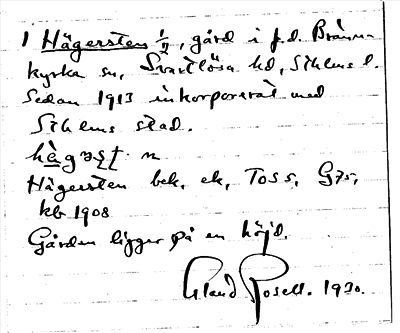 1 Hägersten 1/2, gård i f.d. Bränn-
kyrka sn, Svartlösa hd, Sthlms l.
Sedan 1913 inkorporerat med
Sthlms stad.
n
Hägersten bek. ek, Toss, Gzs,
kb 1908
Gården ligger på en höjd.
Erland Rosell. 1930.